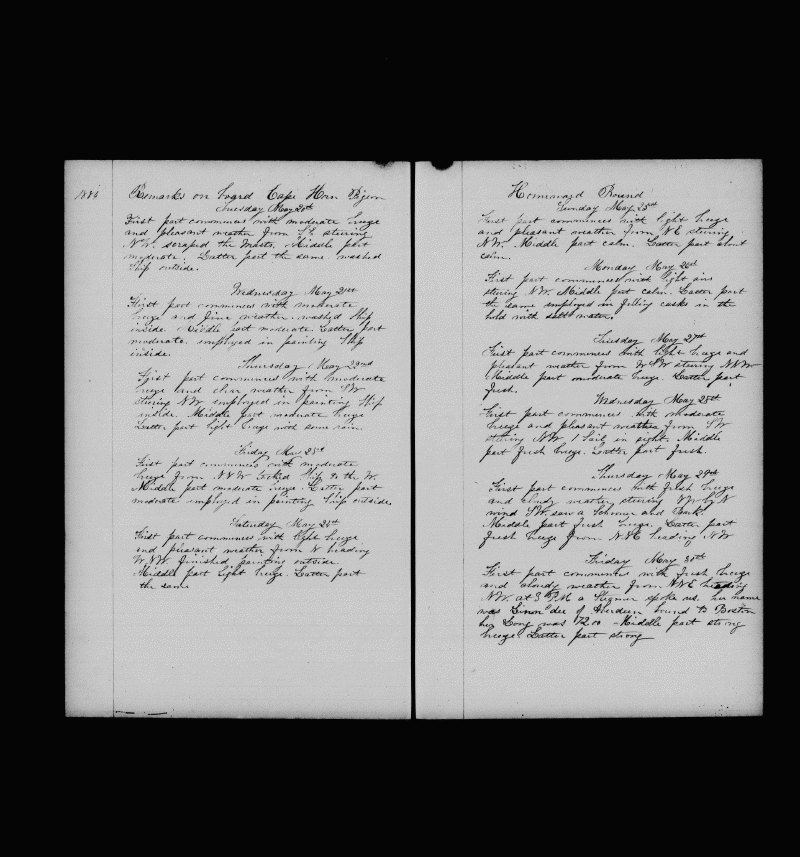 Remarks on board Cape Horn Pigeon
Tuesday May 20th
First part commences with moderate breeze
and pleasant weather from SE steering
NW. scraped the Masts. Middle part
moderate. Latter part the same. washed
Ship outside.
Wednesday May 21st
First part commences with moderate
breeze and fine weather. washed Ship
inside. Middle part moderate. Latter part
moderate. employed in painting Ship
inside.
Thursday May 22nd
First part commences with moderate
breeze and clear weather from SW
steering NW employed in painting Ship
inside. Middle part moderate breeze
Latter part light breeze with some rain.
Friday May 23rd
First part commences with moderate
breeze from Tacked Ship to the W.
Middle part moderate breeze. Latter part
moderate employed in painting Ship outside.
Saturday May 24th
First part commences with light breeze
and pleasant weather from N heading
WNW finished painting outside.
Middle part light breeze. Latter part
the same
Homeward Bound
Sunday May 25th
First part commences with light breeze
and pleasant weather from NE steering
NW. Middle part calm. Latter part about
calm.
Monday May 26th
First part commences with light airs
steering NW. Middle part calm. Latter part
the same employed in filling casks in the
hold with salt water.
Tuesday May 27th
First part commences with light breeze and
pleasant weather from WSW steering NNW
Middle part moderate breeze. Latter part
fresh.
Wednesday May 28th
First part commences with moderate
breeze and pleasant weather from SW
steering NW 1 Sail in sight. Middle
part fresh breeze. Latter part fresh.
Thursday May 29th
First part commences with fresh breeze
and cloudy weather steering NW by N
wind SW. saw a Schooner and Bark.
Middle part fresh breeze. Latter part
fresh breeze from NNE heading NW
Friday May 30th
First part commences with fresh breeze
and cloudy weather from NNE heading
NW. at 3 PM a Steamer spoke us. her name
was of Aberdeen bound to Boston
her Long was 72 00 Middle part strong
breeze. Latter part strong